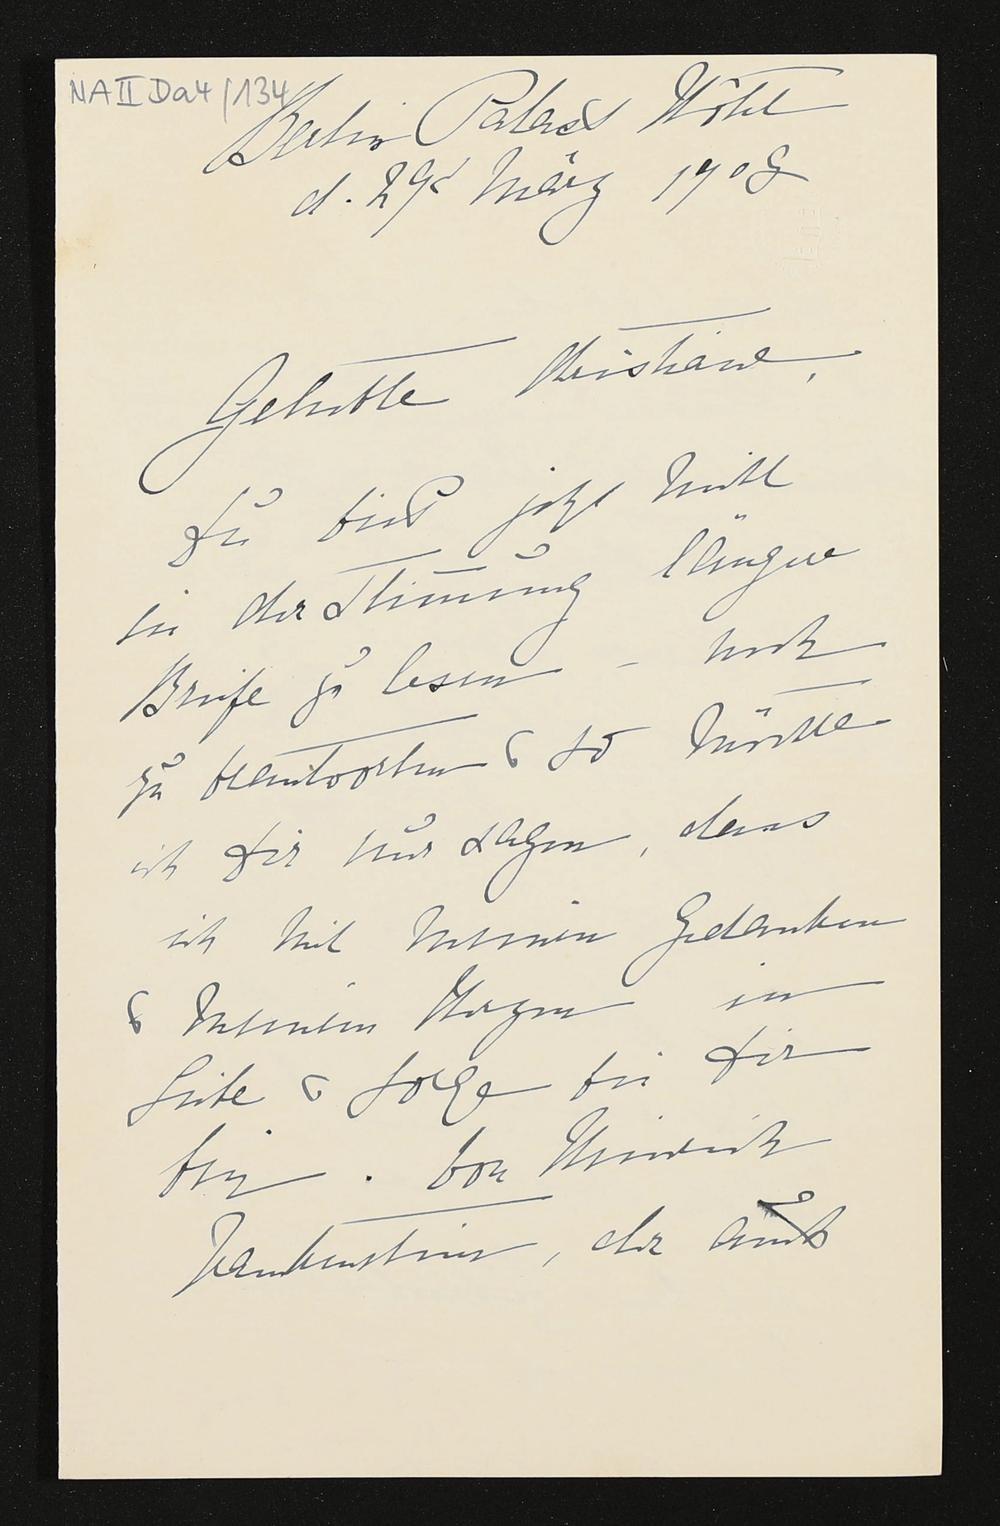 NA II Da 4/134
Berlin Palast Hôtel
d. 29t März 1908
Geliebte Christiane,
Du bist jetzt nicht
in der Stimmung längere
Briefe zu lesen – noch
zu beantworten & so möchte
ich Dir nur sagen, dass
ich mit meinen Gedanken
& meinem Herzen in
Liebe & Sorge bei Dir
bin. Von Heinrich
Frankenstein, der auch